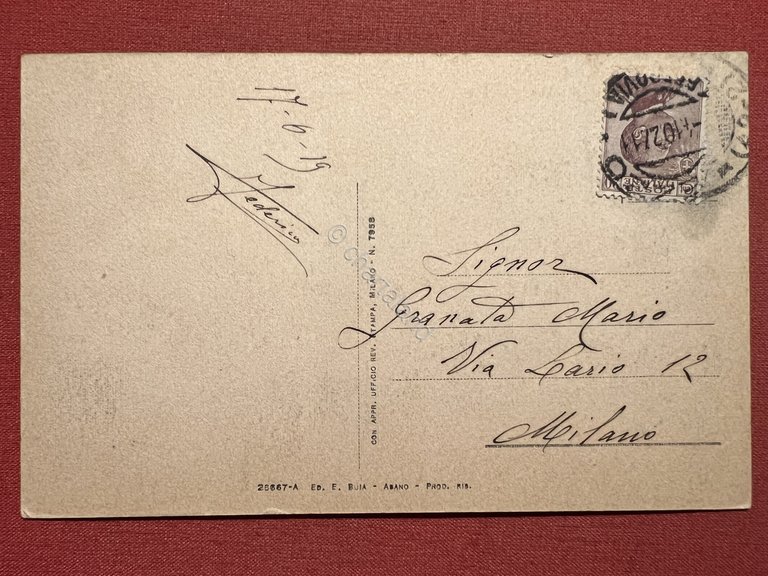 17-6-19
Federico
Signor
Granata Mario
Via Lario 12
Milano
CON APPR. UFFICIO REV. STAMPA, MILANO - N. 7958
26667-A ED. E. BUJA - ABANO - PROD. RIS.
POSTE